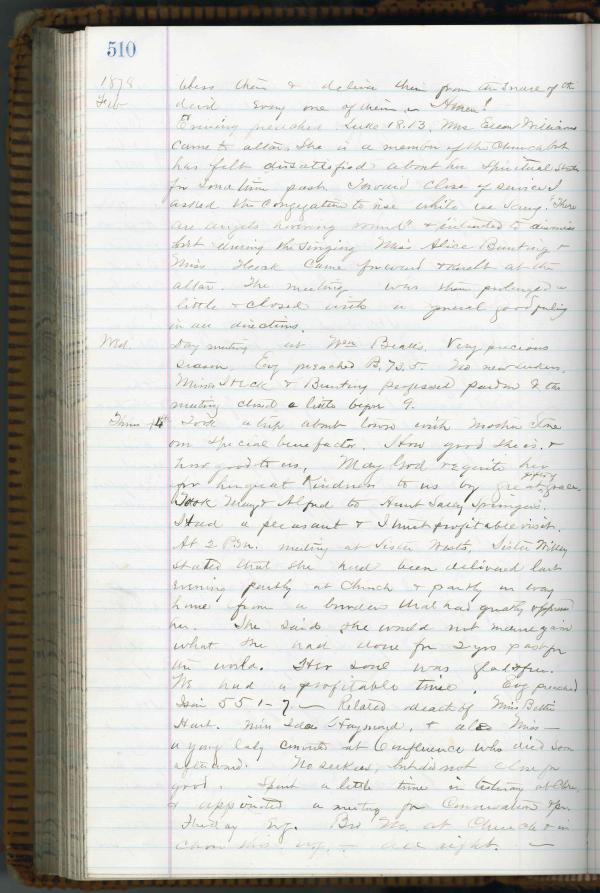 510
1878 bless them & deliver them from the snare of the
Feb devil every one of them. Amen!
Evening preached Luke 18.13. Mrs Ellen Williams
came to altar. She is a member of the Church but
has felt disatisfied about her Spiritual State
for some time past. Toward close of service I
asked the Congregation to rise while we sang "There
are angels hovering round" & intended to dismiss
but during the singing Miss Alice Bunting &
Miss Heck came forward & knelt at the
altar. The meeting was then prolonged a
little & closed with a general good feeling
in all directions.
Wed. Day meeting at Wm Bealls. Very precious
season. Evg preached Ps. 73.5. No new seekers.
Misses Heck & Bunting professed pardon & the
meeting closed a little before 9.
Thurs 14th Took a trip about town with Mother
our special benefactor. How good she is &
how good to us. May God requite her
for her great kindness to us by great grace.
Took Mary & Alfred to Aunt Sally Springers.
I had a pleasant & I trust profitable visit.
At 2 P.M. meeting at Sister Wests, Sister
stated that she had been delivered last
evening partly at Church & partly on way
home from a burden that had greatly oppressed
her. She said she would not again
what she had done for 2 yrs past for
the world. Her soul was glad & free.
We had a profitable time. Evg preached
Isai 55 1-7 — Related death of Miss Bettie
Hart. Miss Ida Haymond, & also Miss —
a young lady convert at Confluence who died soon
afterward. No seekers, but did not close for
good. Spent a little time in testimony
& appointed a meeting for Consecration &c for
Friday Evg. Bro M. at Church & in
all right. —